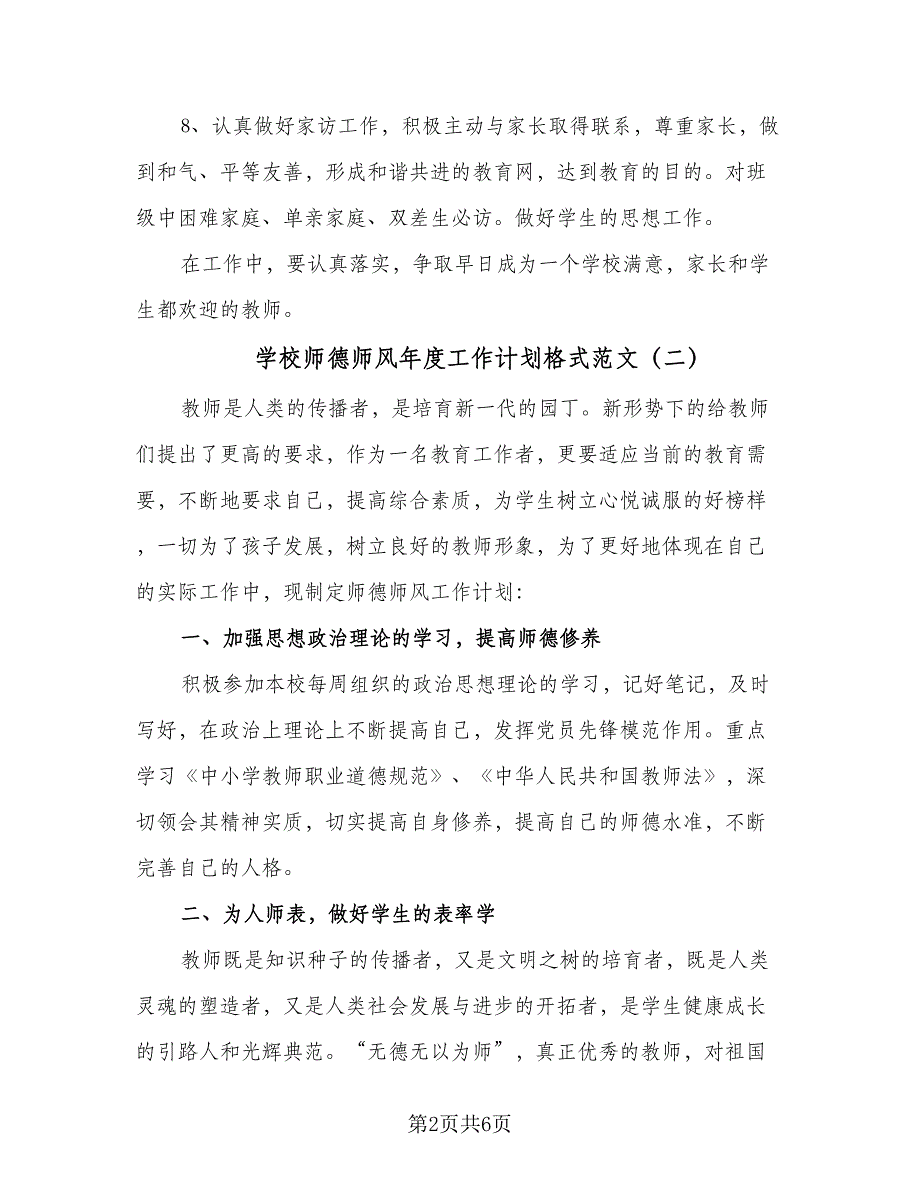 8、认真做好家访工作，积极主动与家长取得联系，尊重家长，做
到和气、平等友善，形成和谐共进的教育网，达到教育的目的。对班
级中困难家庭、单亲家庭、双差生必访。做好学生的思想工作。
在工作中，要认真落实，争取早日成为一个学校满意，家长和学
生都欢迎的教师。
学校师德师风年度工作计划格式范文（二）
教师是人类的传播者，是培育新一代的园丁。新形势下的给教师
们提出了更高的要求，作为一名教育工作者，更要适应当前的教育需
要，不断地要求自己，提高综合素质，为学生树立心悦诚服的好榜样
，一切为了孩子发展，树立良好的教师形象，为了更好地体现在自己
的实际工作中，现制定师德师风工作计划：
一、加强思想政治理论的学习，提高师德修养
积极参加本校每周组织的政治思想理论的学习，记好笔记，及时
写好，在政治上理论上不断提高自己，发挥党员先锋模范作用。重点
学习《中小学教师职业道德规范》、《中华人民共和国教师法》，深
切领会其精神实质，切实提高自身修养，提高自己的师德水准，不断
完善自己的人格。
二、为人师表，做好学生的表率学
教师既是知识种子的传播者，又是文明之树的培育者，既是人类
灵魂的塑造者，又是人类社会发展与进步的开拓者，是学生健康成长
的引路人和光辉典范。“无德无以为师”，真正优秀的教师，对祖国
第2页共6页